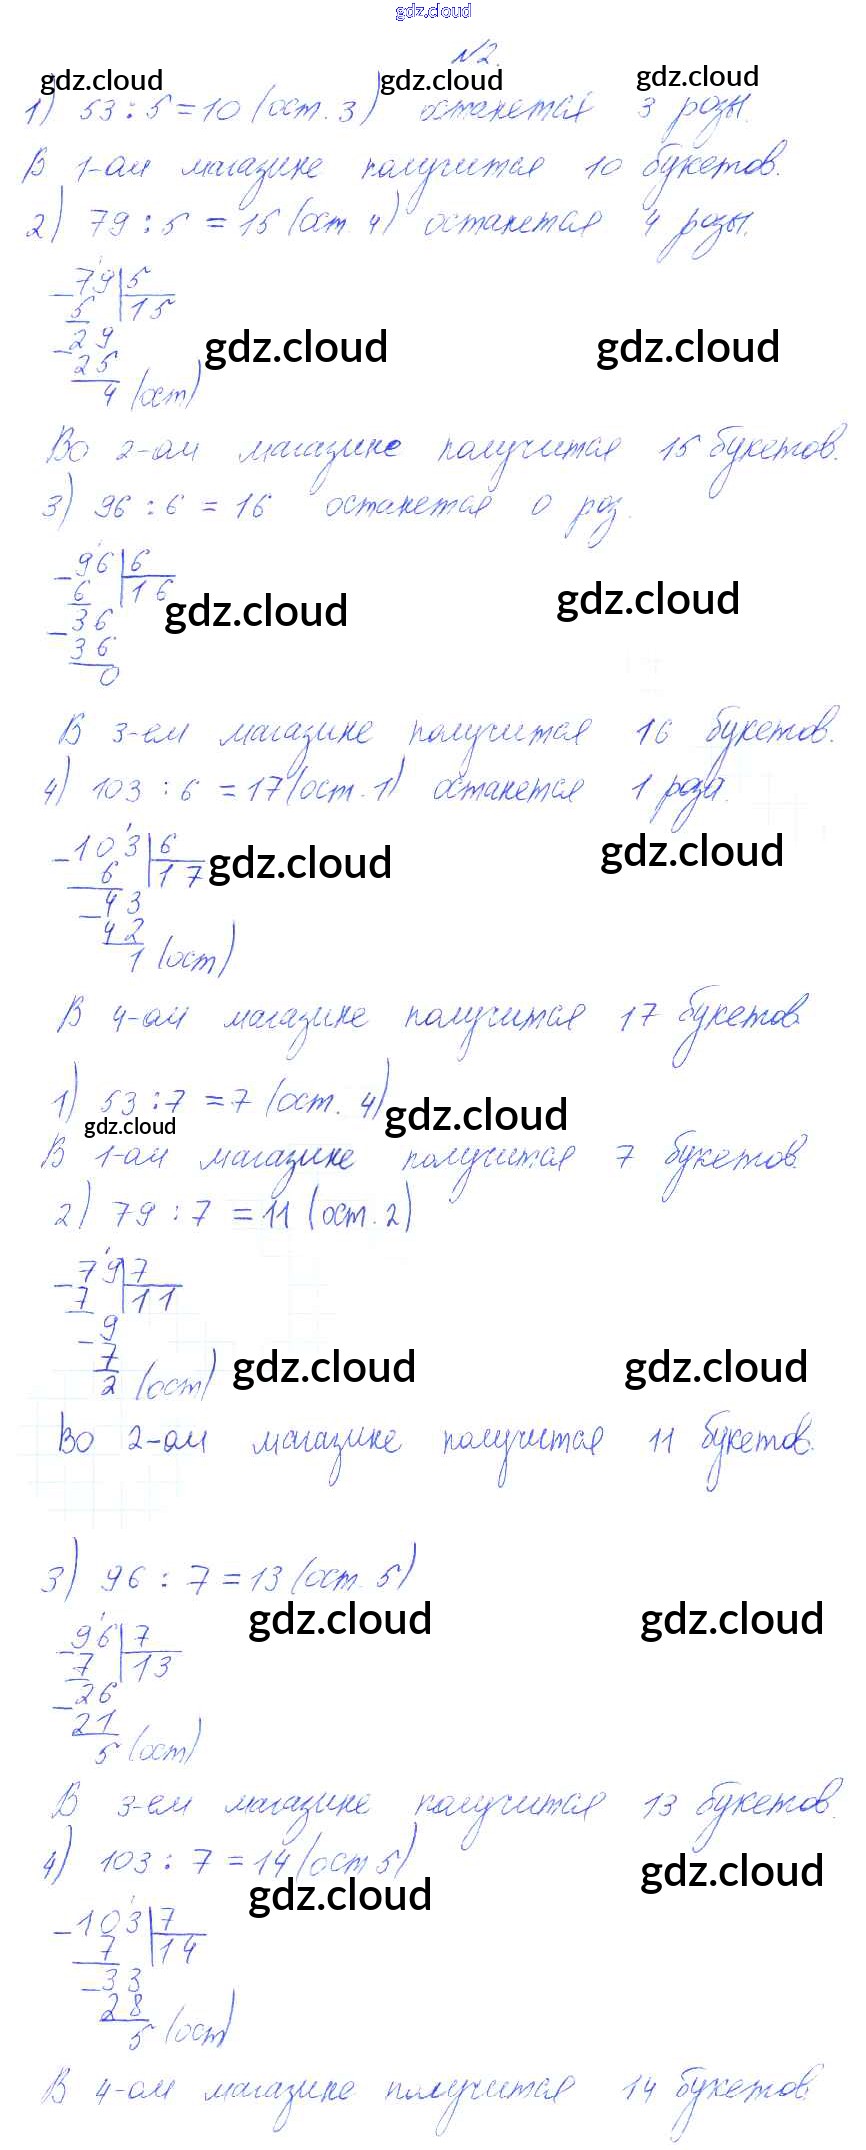 gdz.cloud
№2.
gdz.cloud gdz.cloud gdz.cloud
1) 53 : 5 = 10 (ост. 3) останется 3 розы.
В 1-ом магазине получится 10 букетов.
2) 79 : 5 = 15 (ост. 4) останется 4 розы.
- 79 | 5
5 | 15
- 29
25
4 (ост)
gdz.cloud gdz.cloud
Во 2-ом магазине получится 15 букетов.
3) 96 : 6 = 16 останется 0 роз.
- 96 | 6
6 | 16
- 36
36
0
gdz.cloud gdz.cloud
В 3-ем магазине получится 16 букетов.
4) 103 : 6 = 17 (ост. 1) останется 1 роза.
- 103 | 6
6 | 17
- 43
42
1 (ост)
gdz.cloud gdz.cloud
В 4-ом магазине получится 17 букетов
1) 53 : 7 = 7 (ост. 4)
gdz.cloud gdz.cloud
В 1-ом магазине получится 7 букетов
2) 79 : 7 = 11 (ост. 2)
- 79 | 7
7 | 11
- 9
7
2 (ост)
gdz.cloud gdz.cloud
Во 2-ом магазине получится 11 букетов.
3) 96 : 7 = 13 (ост. 5)
- 96 | 7
7 | 13
- 26
21
5 (ост)
gdz.cloud gdz.cloud
В 3-ем магазине получится 13 букетов.
4) 103 : 7 = 14 (ост 5)
gdz.cloud gdz.cloud
- 103 | 7
7 | 14
- 33
28
5 (ост)
В 4-ом магазине получится 14 букетов